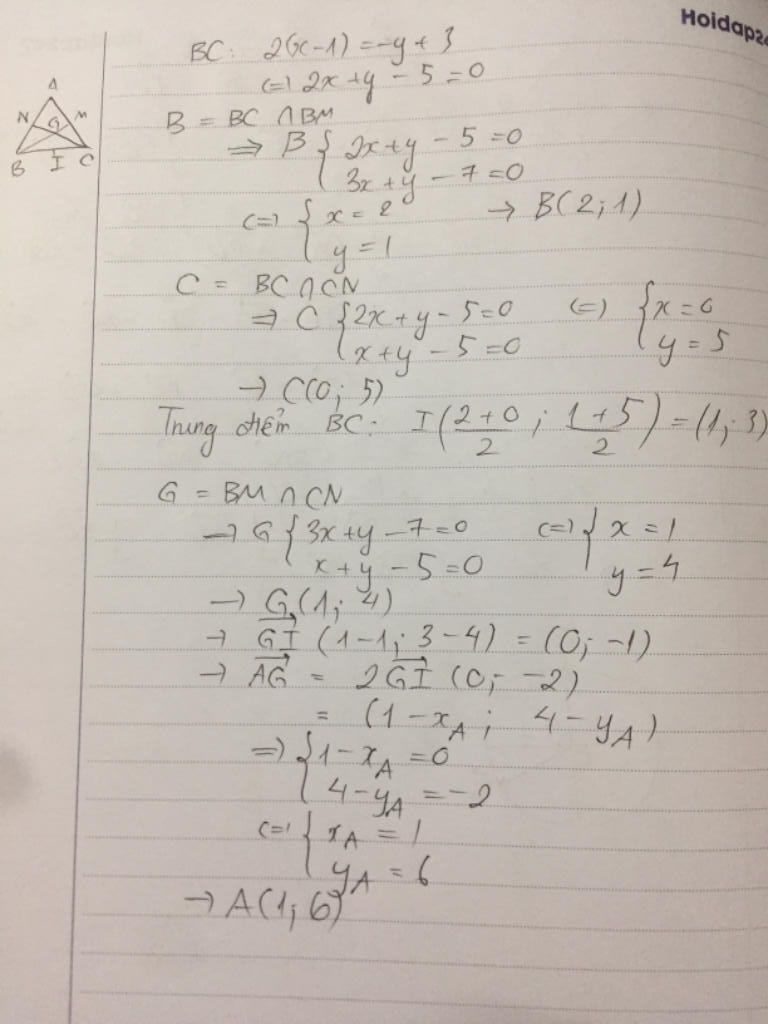 Hoidap2
BC: 2(x-1) = -y + 3
(=) 2x+y - 5 = 0
A
N M
G
B I C
B = BC ∩ BM
=> B { 2x+y - 5 = 0
3x + y - 7 = 0
(=) { x = 2 → B(2; 1)
y = 1
C = BC ∩ CN
=> C { 2x + y - 5 = 0 (=) { x = 0
x + y - 5 = 0 y = 5
→ C(0; 5)
Trung điểm BC: I(2+0/2 ; 1+5/2) = (1; 3)
G = BM ∩ CN
→ G { 3x + y - 7 = 0 (=) { x = 1
x + y - 5 = 0 y = 4
→ G(1; 4)
→ GI (1-1; 3-4) = (0; -1)
→ AG = 2GI (0; -2)
= (1 - xA ; 4 - yA)
=> { 1 - xA = 0
4 - yA = -2
(=) { xA = 1
yA = 6
→ A(1; 6)